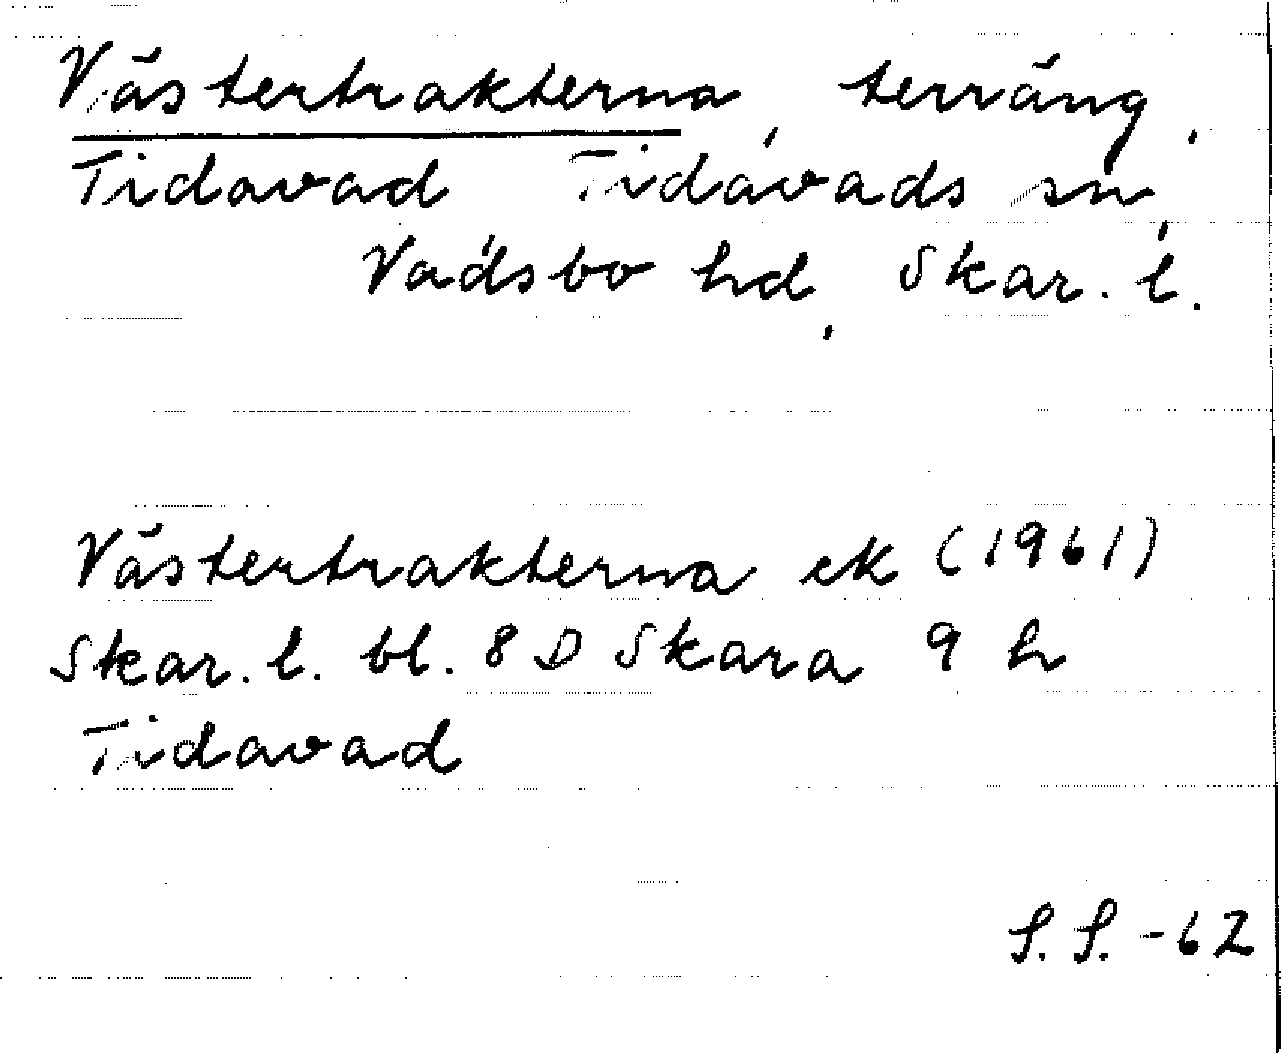 Västertrakterna, terräng,
Tidavad Tidavads sn,
Vadsbo hd, Skar. l.
Västertrakterna ek (1961)
Skar. l. bl. 8 D Skara 9 h
Tidavad
S. S. -62